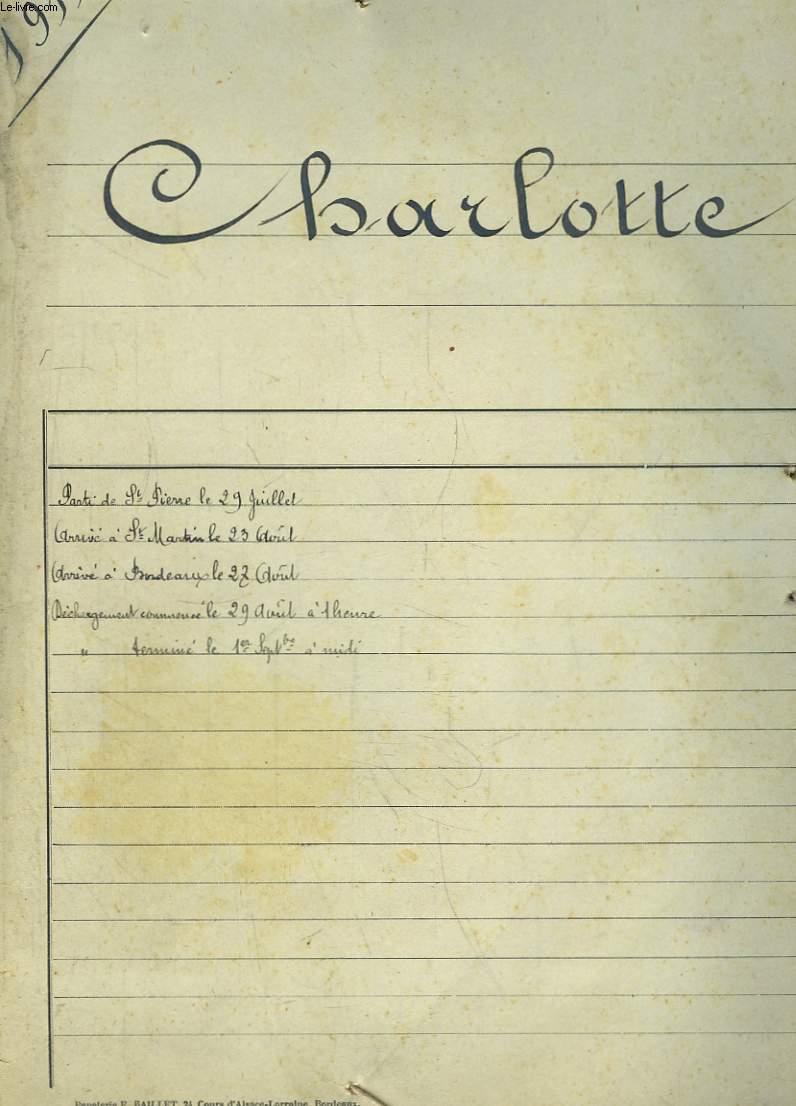 Le-livre.com
191
Charlotte
Parti de St Pierre le 29 Juillet
Arrivé à St Martin le 23 Août
Arrivé à Bordeaux le 27 Août
Déchargement commencé le 29 Août à 1 heure
" terminé le 1er Septbre à midi
Papeterie E. BAILLET, 24 Cours d'Alsace-Lorraine, Bordeaux.